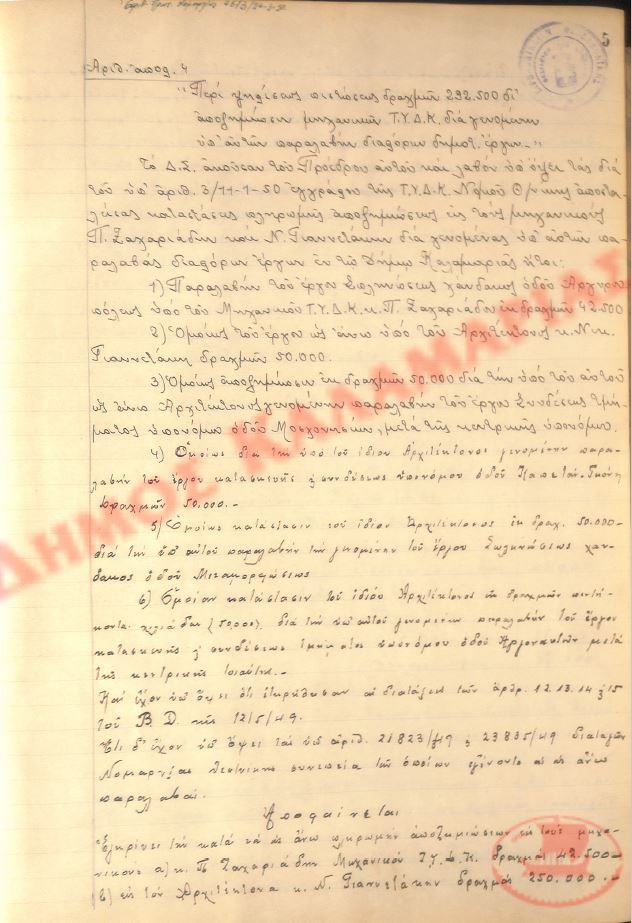 5
Ἀριθ. ἀποφ. 4
"Περί ψηφίσεως πιστώσεως δραχμῶν 292.500 δι'
ἀποζημίωσιν μηχανικῶν Τ.Υ.Δ.Κ. διά γενομένην
ὑπ' αὐτῶν παραλαβήν διαφόρων δημοτ. ἔργων.-"
Τό Δ.Σ. ἀκοῦσαν τοῦ Προέδρου αὐτοῦ καί λαβόν ὑπ' ὄψει τάς διά
τοῦ ὑπ' ἀριθ. 3/11-1-50 ἐγγράφου τῆς Τ.Υ.Δ.Κ. Νομοῦ Θ/νίκης ἀποστα-
λείσας καταστάσεις πληρωμῆς ἀποζημιώσεως εἰς τούς μηχανικούς
Π. Ζαχαριάδην καί Ν. Γιαννετάκην διά γενομένας ὑπ' αὐτῶν πα-
ραλαβάς διαφόρων ἔργων ἐν τῷ Δήμῳ Καλαμαριᾶς ἤτοι:
1) Παραλαβήν τοῦ ἔργου Σωληνώσεως χάνδακος ὁδοῦ Ἀργυρου-
πόλεως ὑπό τοῦ Μηχανικοῦ Τ.Υ.Δ.Κ. κ. Π. Ζαχαριάδου ἐκ δραχμῶν 42.500
2) Ὁμοίως τοῦ ἔργου ὡς ἄνω ὑπό τοῦ Ἀρχιτέκτονος κ. Νικ.
Γιαννετάκη δραχμῶν 50.000.
3) Ὁμοίως ἀποζημίωσιν ἐκ δραχμῶν 50.000 διά τήν ὑπό τοῦ αὐτοῦ
ὡς ἄνω Ἀρχιτέκτονος γενομένην παραλαβήν τοῦ ἔργου Συνδέσεως τμή-
ματος ὑπονόμου ὁδοῦ Μοσχονησίων, μετά τῆς κεντρικῆς ὑπονόμου.
4) Ὁμοίως διά τήν ὑπό τοῦ ἰδίου Ἀρχιτέκτονος γενομένην παρα-
λαβήν τοῦ ἔργου κατασκευῆς & συνδέσεως ὑπονόμου ὁδοῦ Καπετάν-Γκόνη
δραχμῶν 50.000.-
5) Ὁμοίως κατάστασιν τοῦ ἰδίου Ἀρχιτέκτονος ἐκ δραχ. 50.000-
διά τήν ὑπ' αὐτοῦ παραλαβήν τήν γενομένην τοῦ ἔργου Σωληνώσεως χάν-
δακος ὁδοῦ Μεταμορφώσεως
6) Ὁμοίαν κατάστασιν τοῦ ἰδίου Ἀρχιτέκτονος ἐκ δραχμῶν πεντή-
κοντα χιλιάδων (50.000). διά τήν ὑπ' αὐτοῦ γενομένην παραλαβήν τοῦ ἔργου
κατασκευῆς & συνδέσεως τμήματος ὑπονόμου ὁδοῦ Ἀργοναυτῶν μετά
τῆς κεντρικῆς τοιαύτης.-
Καί ἔχον ὑπ' ὄψει ὅτι ἐτηρήθησαν αἱ διατάξεις τῶν ἄρθρ. 12.13.14 & 15
τοῦ Β.Δ. τῆς 12/5/49.
Ἔτι δ' ἔχον ὑπ' ὄψει τάς ὑπ' ἀριθ. 21823/49 & 23835/49 διαταγάς
Νομαρχίας Θεσ/νίκης συνεπείᾳ τῶν ὁποίων ἐγένοντο αἱ ὡς ἄνω
παραλαβαί.
Ἀποφαίνεται
Ἐγκρίνει τήν κατά τά ὡς ἄνω πληρωμήν ἀποζημιώσεων εἰς τούς μηχα-
νικούς α) κ. Π. Ζαχαριάδην Μηχανικόν Τ.Υ.Δ.Κ. δραχμάς 42.500-
β) εἰς τόν Ἀρχιτέκτονα κ. Ν. Γιαννετάκην δραχμάς 250.000.-
ΔΗΜΟΣ ΚΑΛΑΜΑΡΙΑΣ